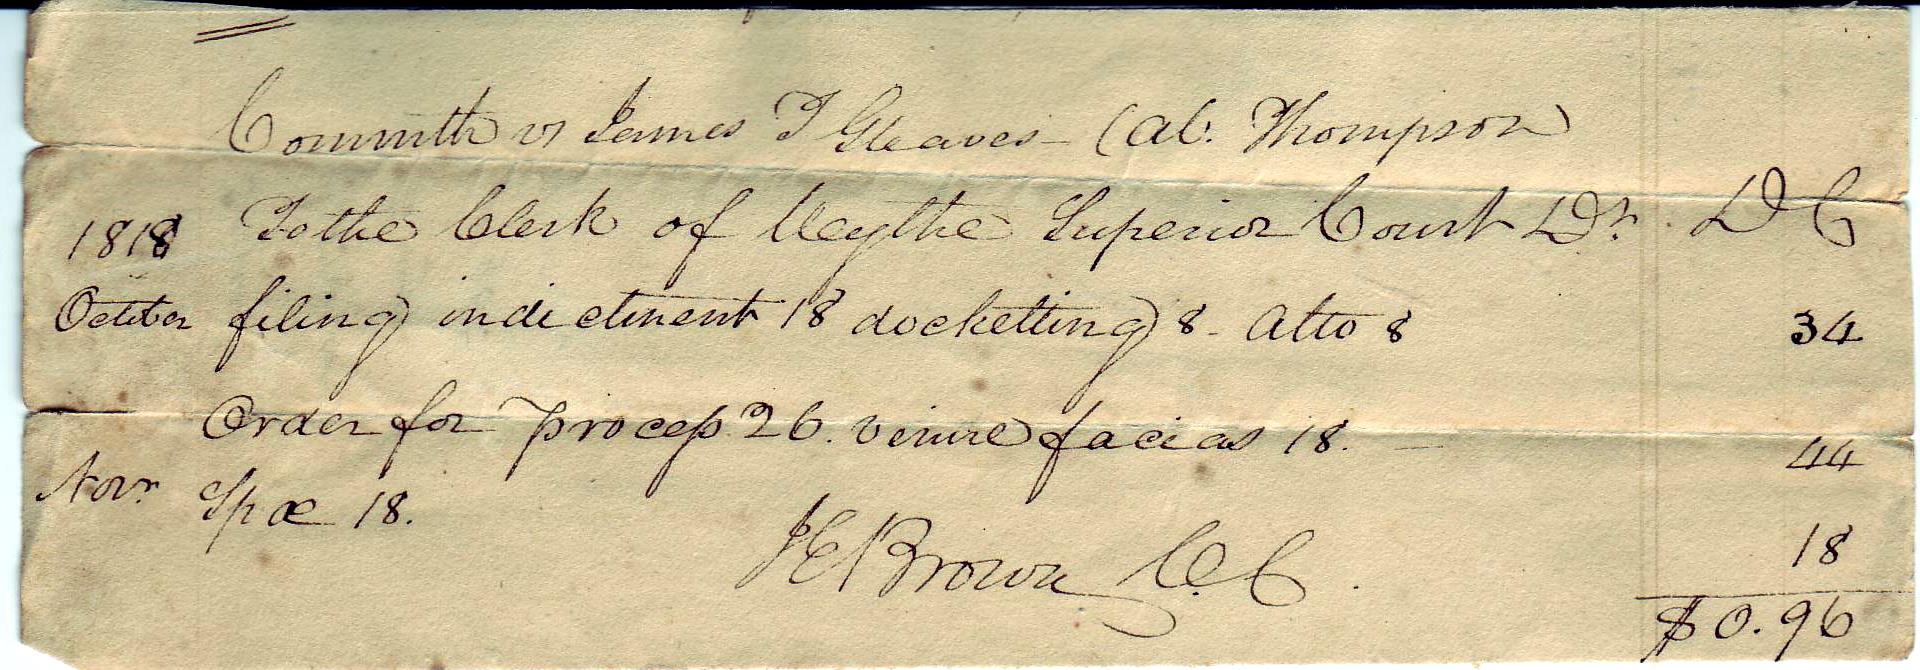 Commth vs James T Gleaves - (al. Thompson)
1818 To the Clerk of Wythe Superior Court Dr. D C
October filing indictment 18 docketting 8 - Atto 8 34
Order for process 26. venire facias 18. - 44
Novr Spœ 18. 18
H E Brown C. C.
$0.96